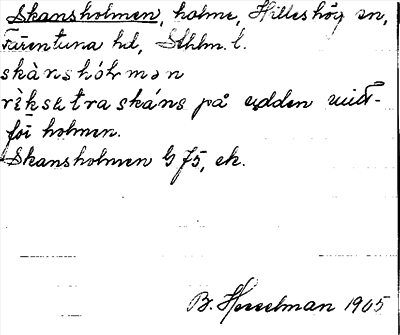 Skansholmen, holme, Hilleshög sn,
Färentuna hd, Sthlm. l.
skànshólmən
rìksätraskáns på udden mitt-
för holmen.
Skansholmen G 75, ek.
B. Hesselman 1905